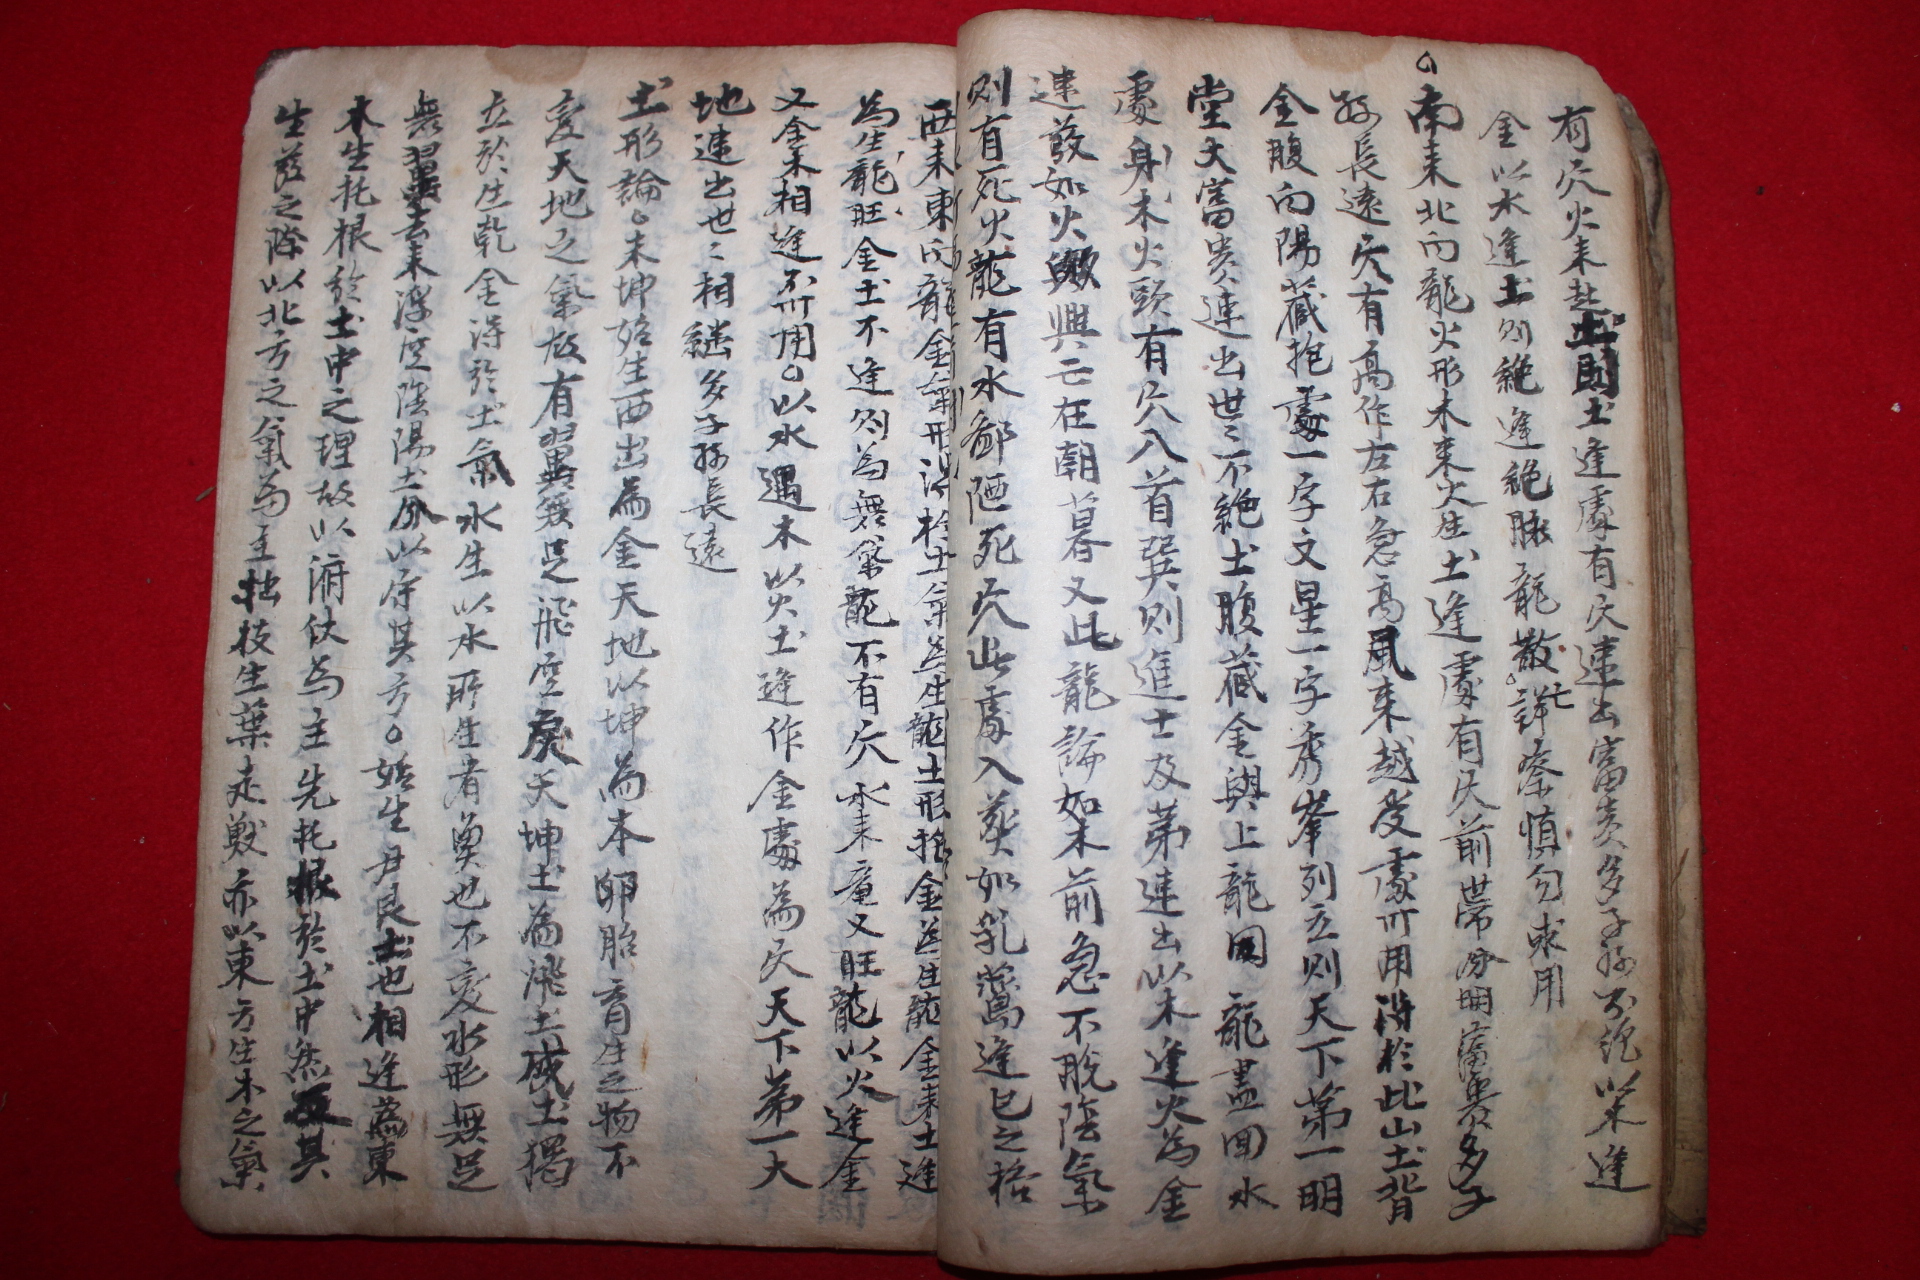 有穴火來赴土則土逢處有穴連出富貴多子孫不絶以木逢
金以水逢土則絶逢絶脉龍散亡詳察慎勿求用
南來北向龍火形木來火生土逢處有穴前帶分明富貴多子
孫長遠穴有高作左右急高風來越受處所用得於此山土背
金腹向陽藏抱處一字文星一字秀峯列立則天下第一明
堂大富貴連出世〻不絶土腹藏金與上龍回龍盡回水
處身木火頭有穴八首巽則進士及第連出以木逢火為金
連發如火興亡在朝暮又此龍論如木前急不脫陰氣
則有死火龍有水鄙陋死穴此處入葬如乳鶯逢已之格
西來東氏龍金氣形得於土氣為生龍土形抱金為生龍金來土逢
為生龍旺金土不逢則為無氣龍不有穴水來童又旺龍以火逢金
又金木相逢不用以水遇木以火土逢作金處為穴天下第一大
地連出世〻相繼多子孫長遠
土形論 未坤始生西出為金天地以坤為本卵胎育生之物不
變天地之氣故有翼無足飛空戾天坤土為德土咸土獨
立於生乾金得於土氣水生以水所生者魚也不變水形無足
無翼去來浮空陰陽土分以存其方 始生尹艮土也相逢為東
木生托根於土中之理故以 伏為主先托根於土中然 其
生蔭之際以北方之氣為主 枝生葉走獸亦以東方生木之氣